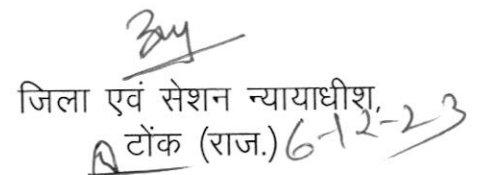 जिला एवं सेशन न्यायाधीश,
टोंक (राज.) 6-12-23